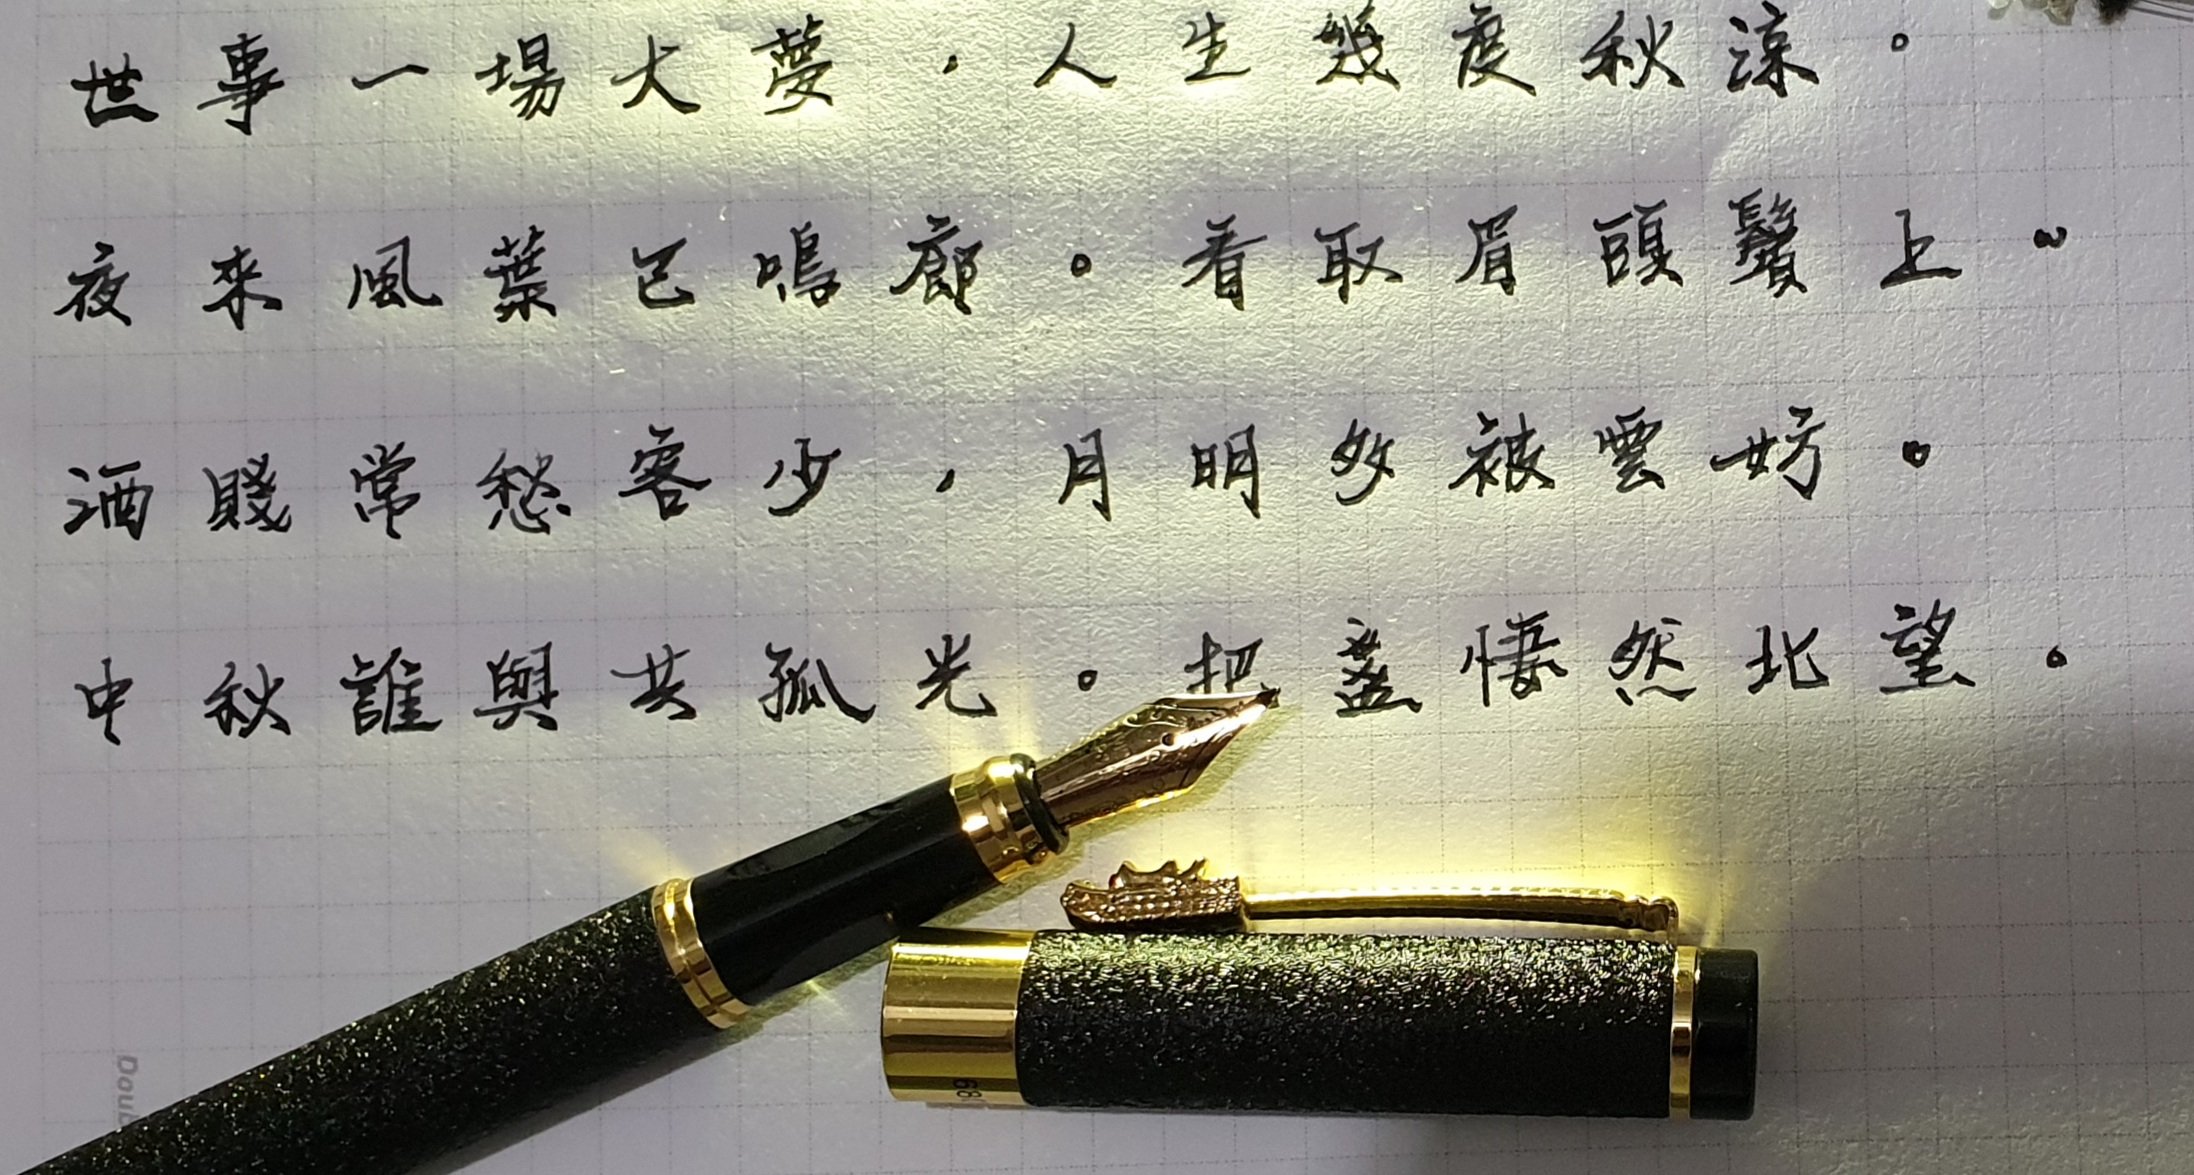 世事一場大夢，人生幾度秋涼。
夜來風葉已鳴廊。看取眉頭鬢上。
酒賤常愁客少，月明多被雲妨。
中秋誰與共孤光。把盞悽然北望。
Doub
68